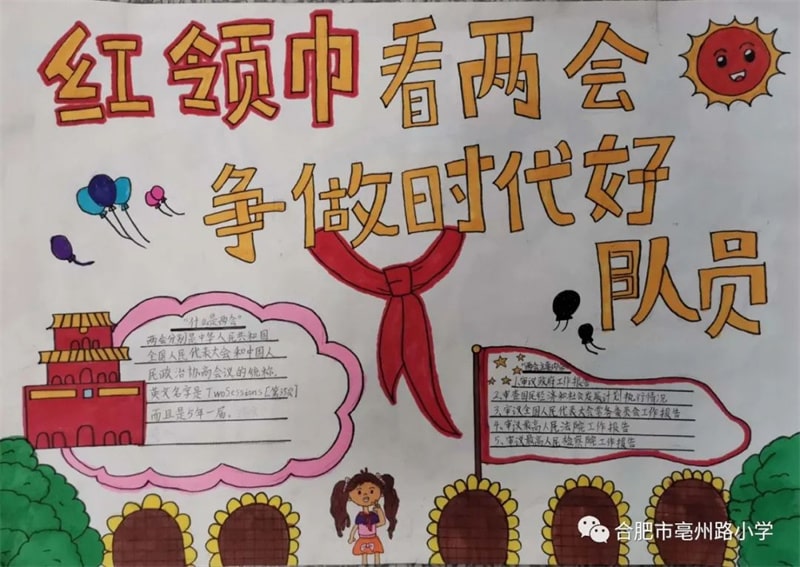 红领巾看两会
争做时代好
队员
"什么是两会"
两会分别是中华人民共和国
全国人民代表大会和中国人
民政治协商会议的统称,
英文名字是TwoSessions
而且是5年一届。
"两会主要内容"
1.审议政府工作报告
2.审查国民经济和社会发展计划执行情况
3.审议全国人民代表大会常务委员会工作报告
4.审议最高人民法院工作报告
5.审议最高人民检察院工作报告
合肥市亳州路小学